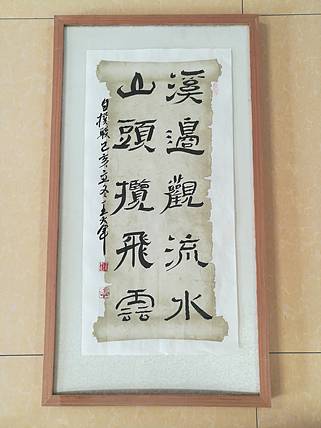 溪邊觀流水
山頭攬飛雲
自撰聯己亥立冬